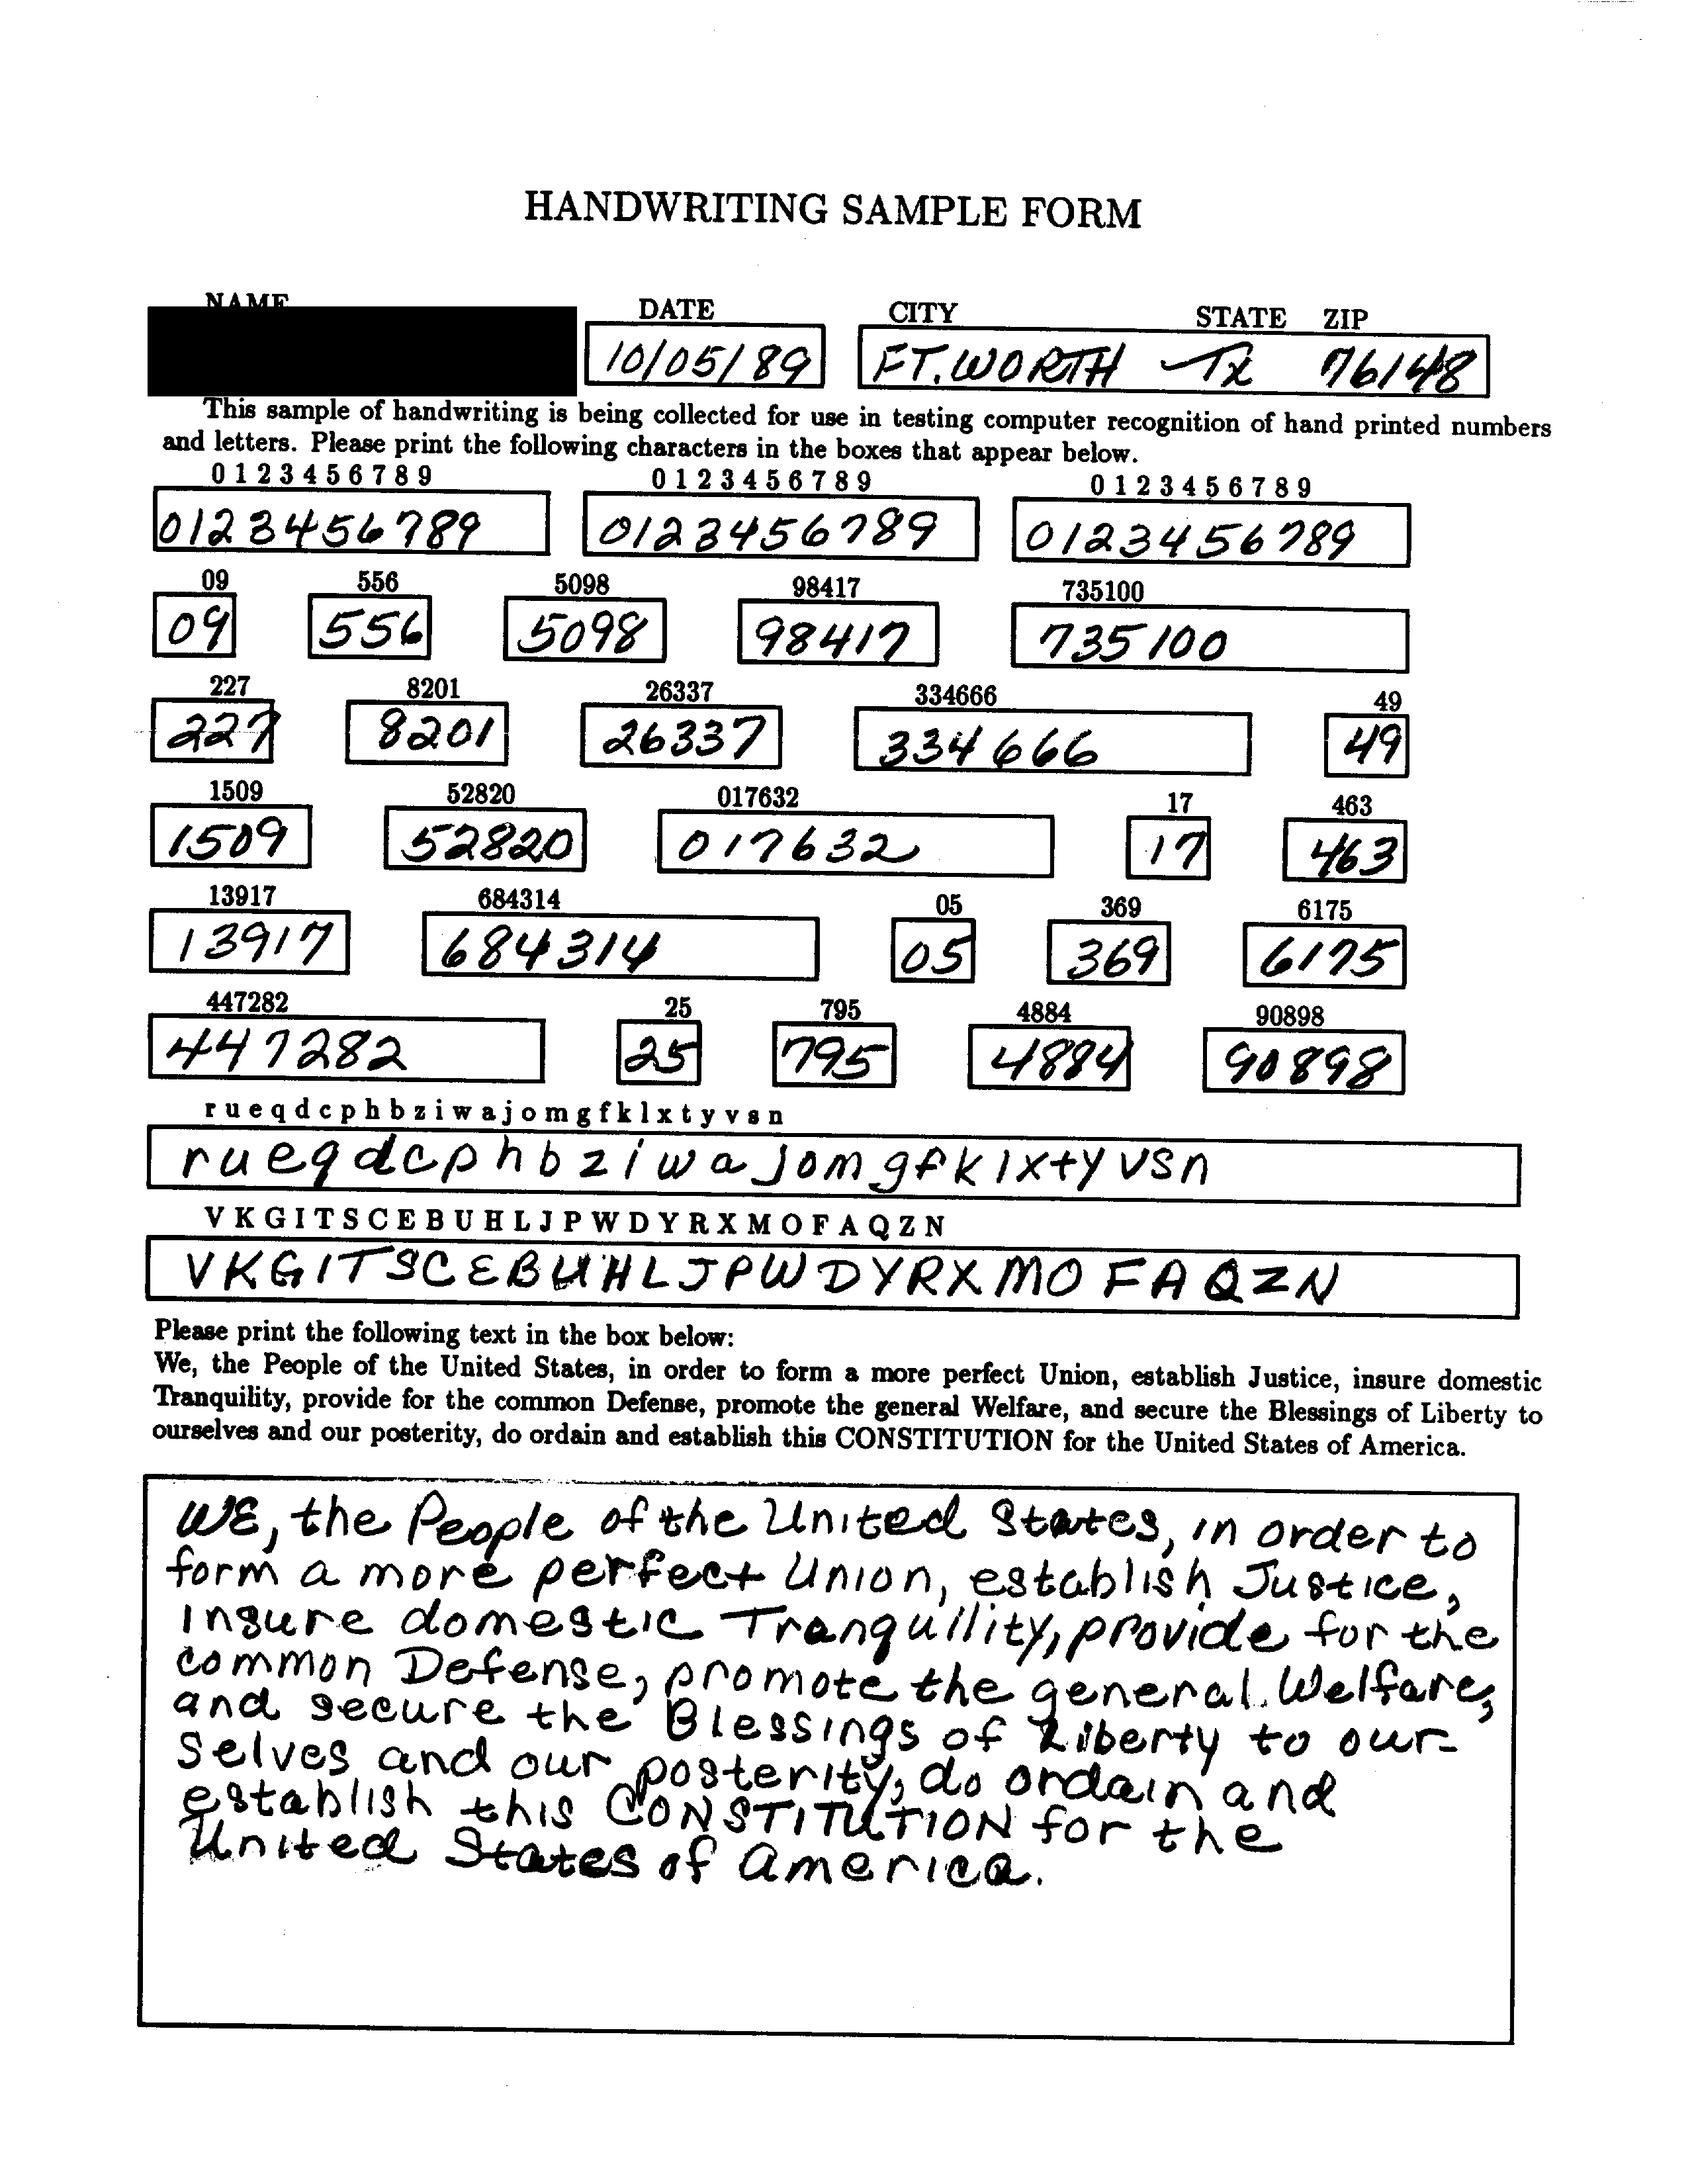 HANDWRITING SAMPLE FORM
NAME DATE CITY STATE ZIP
10/05/89 FT. WORTH TX 76148
This sample of handwriting is being collected for use in testing computer recognition of hand printed numbers
and letters. Please print the following characters in the boxes that appear below.
0 1 2 3 4 5 6 7 8 9 0 1 2 3 4 5 6 7 8 9 0 1 2 3 4 5 6 7 8 9
0123456789 0123456789 0123456789
09 556 5098 98417 735100
09 556 5098 98417 735100
227 8201 26337 334666 49
227 8201 26337 334666 49
1509 52820 017632 17 463
1509 52820 017632 17 463
13917 684314 05 369 6175
13917 684314 05 369 6175
447282 25 795 4884 90898
447282 25 795 4884 90898
r u e q d c p h b z i w a j o m g f k l x t y v s n
r u e q d c p h b z i w a j o m g f k l x t y v s n
V K G I T S C E B U H L J P W D Y R X M O F A Q Z N
V K G I T S C E B U H L J P W D Y R X M O F A Q Z N
Please print the following text in the box below:
We, the People of the United States, in order to form a more perfect Union, establish Justice, insure domestic
Tranquility, provide for the common Defense, promote the general Welfare, and secure the Blessings of Liberty to
ourselves and our posterity, do ordain and establish this CONSTITUTION for the United States of America.
WE, the People of the United States, in order to
form a more perfect Union, establish Justice,
insure domestic Tranquility, provide for the
common Defense, promote the general. Welfare,
and secure the Blessings of Liberty to our-
selves and our posterity, do ordain and
establish this CONSTITUTION for the
United States of america.